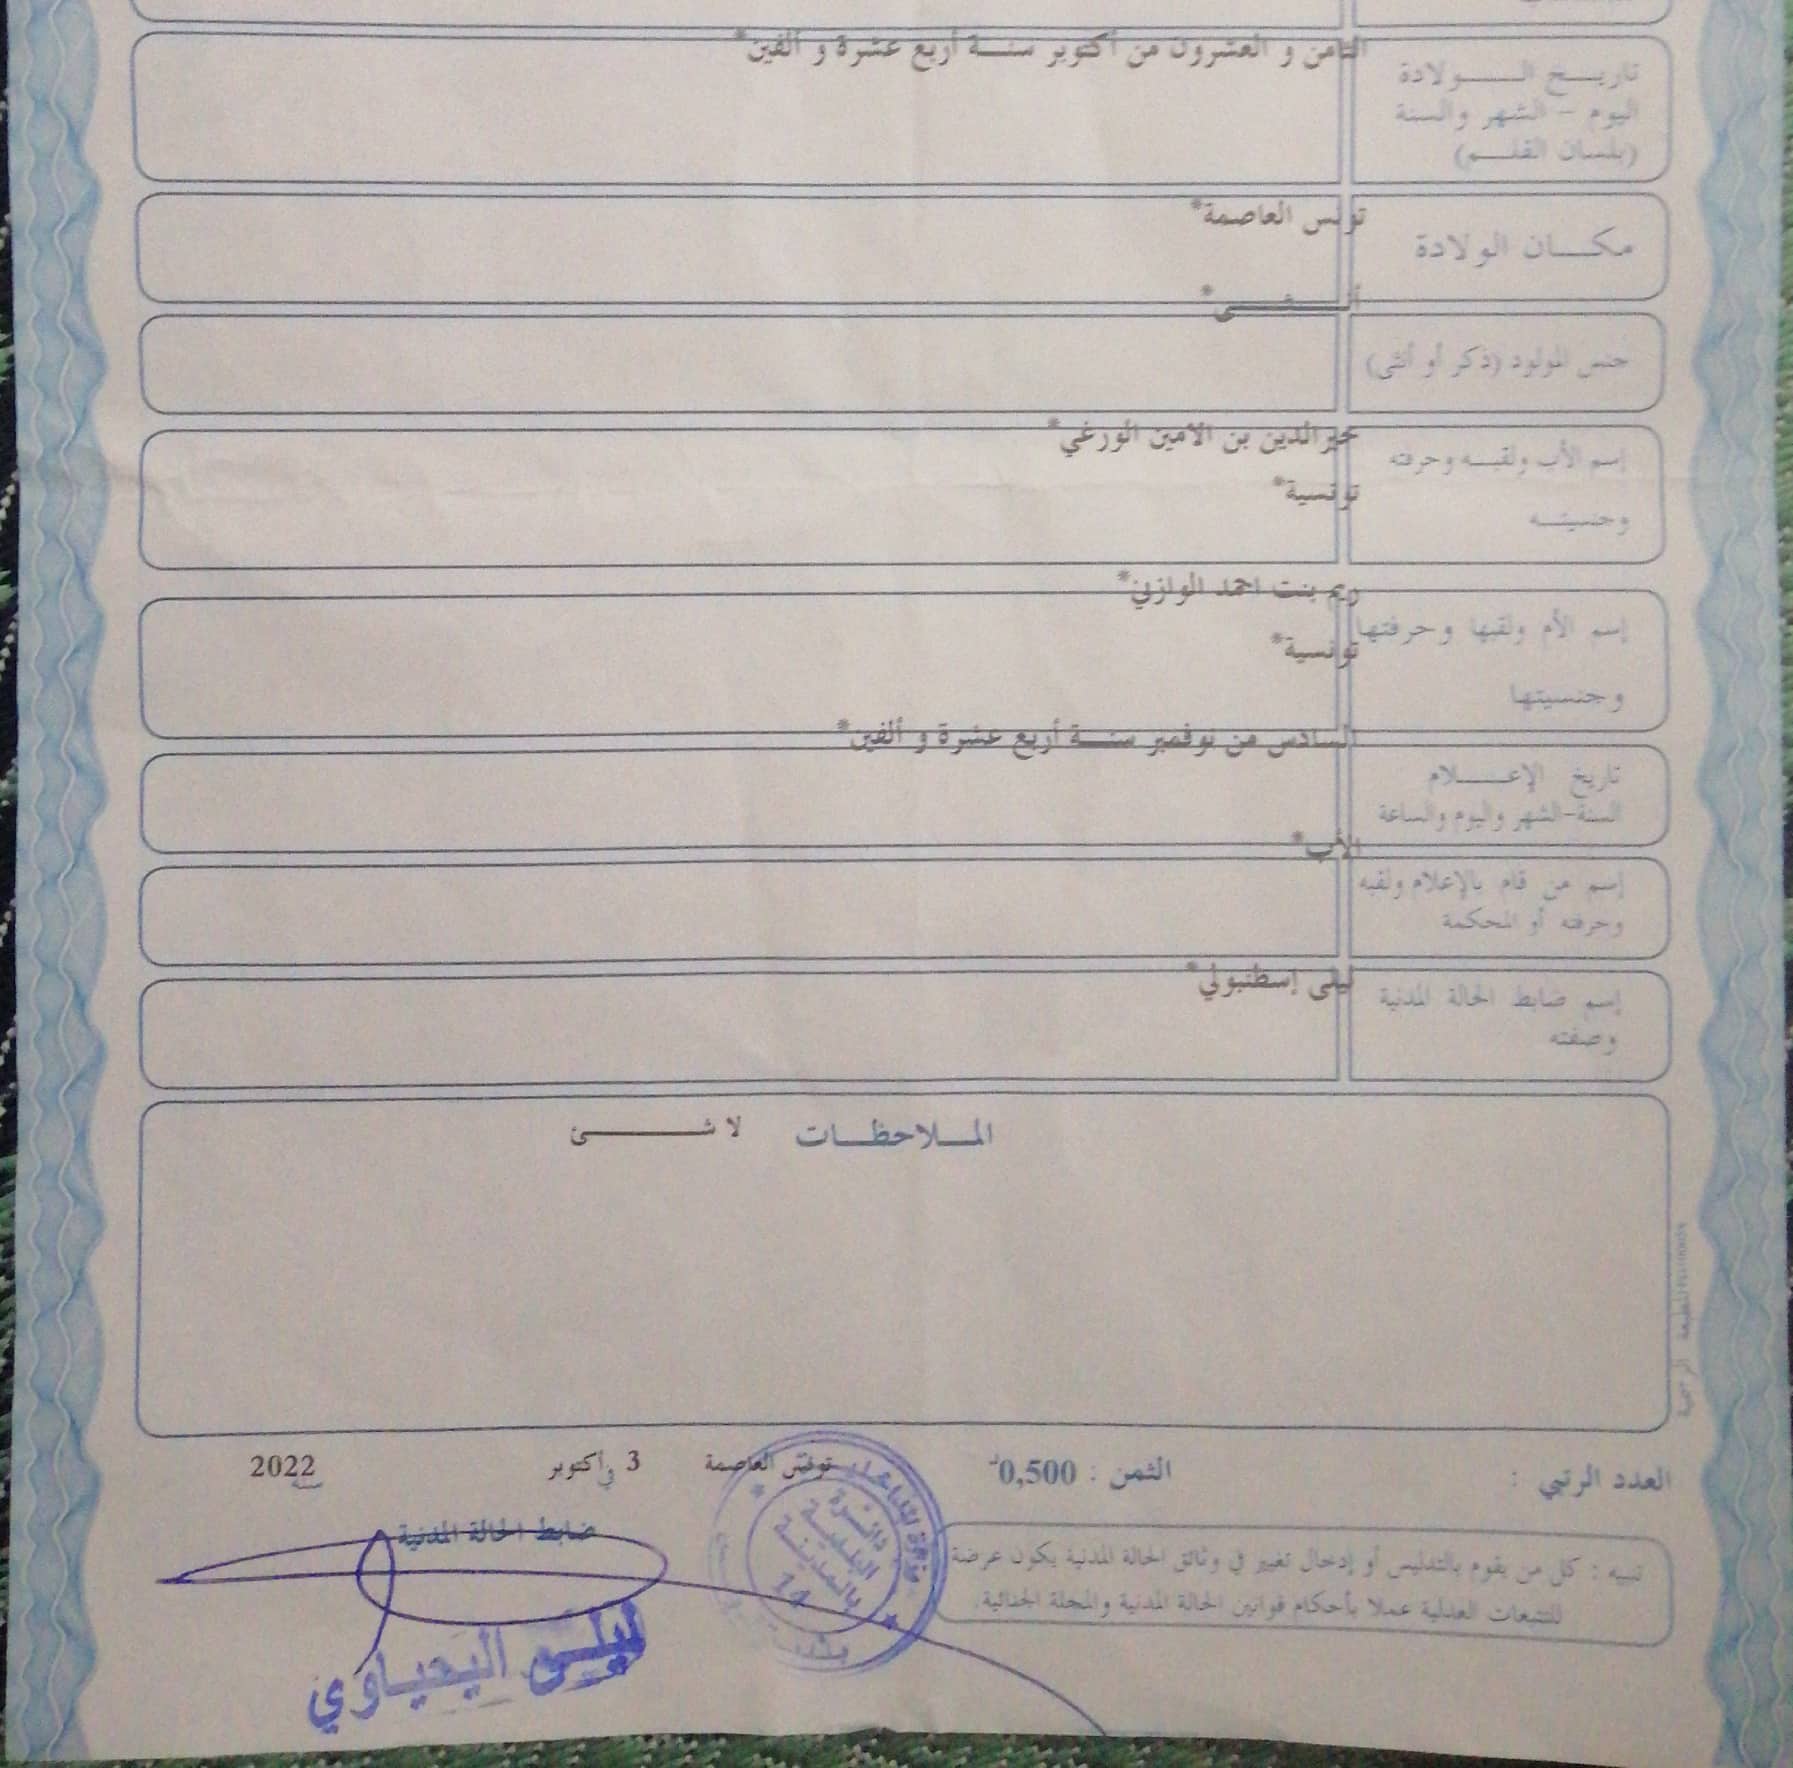 الثامن و العشرون من أكتوبر سنة أربع عشرة و ألفين*
تاريخ الولادة
اليوم - الشهر والسنة
(بلسان القلم)
تونس العاصمة*
مكان الولادة
أنثى*
جنس المولود (ذكر أو أنثى)
خيرالدين بن الامين الورغي*
إسم الأب ولقبه وحرفته
تونسية*
وجنسيته
ريم بنت احمد الوازني*
إسم الأم ولقبها وحرفتها
تونسية*
وجنسيتها
السادس من نوفمبر سنة أربع عشرة و ألفين*
تاريخ الإعلام
السنة-الشهر واليوم والساعة
الأب*
إسم من قام بالإعلام ولقبه
وحرفته أو المحكمة
ليلى إسطنبولي*
إسم ضابط الحالة المدنية
وصفته
الملاحظات لا شئ
المطبعة الرسمية
العدد الرتبي :
الثمن : 0,500د
تونس العاصمة في 3 أكتوبر سنة 2022
ضابط الحالة المدنية
تنبيه : كل من يقوم بالتدليس أو إدخال تغيير في وثائق الحالة المدنية يكون عرضة
للتتبعات العدلية عملا بأحكام قوانين الحالة المدنية والمجلة الجنائية.
دائرة
البلدية
بالمدينة
ليلى اليحياوي